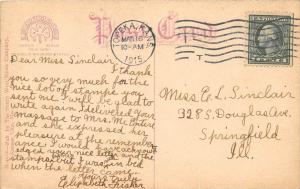 Post Card
TOPEKA, KANS.
10-AM
1915
Dear Miss Sinclair. I thank
you so very much for the
nice lot of stamps you
sent me. I will be glad to
write again. Delivered your
message to Mrs.
and she expressed her
pleasure at the remembr
ance. I would have
edged your nice letter and the
stamps but I was in bed
when the letter came.
Yours truly
Elizabeth Fisher
Miss E. L. Sinclair
328 S. Douglas Ave.
Springfield
Ill.